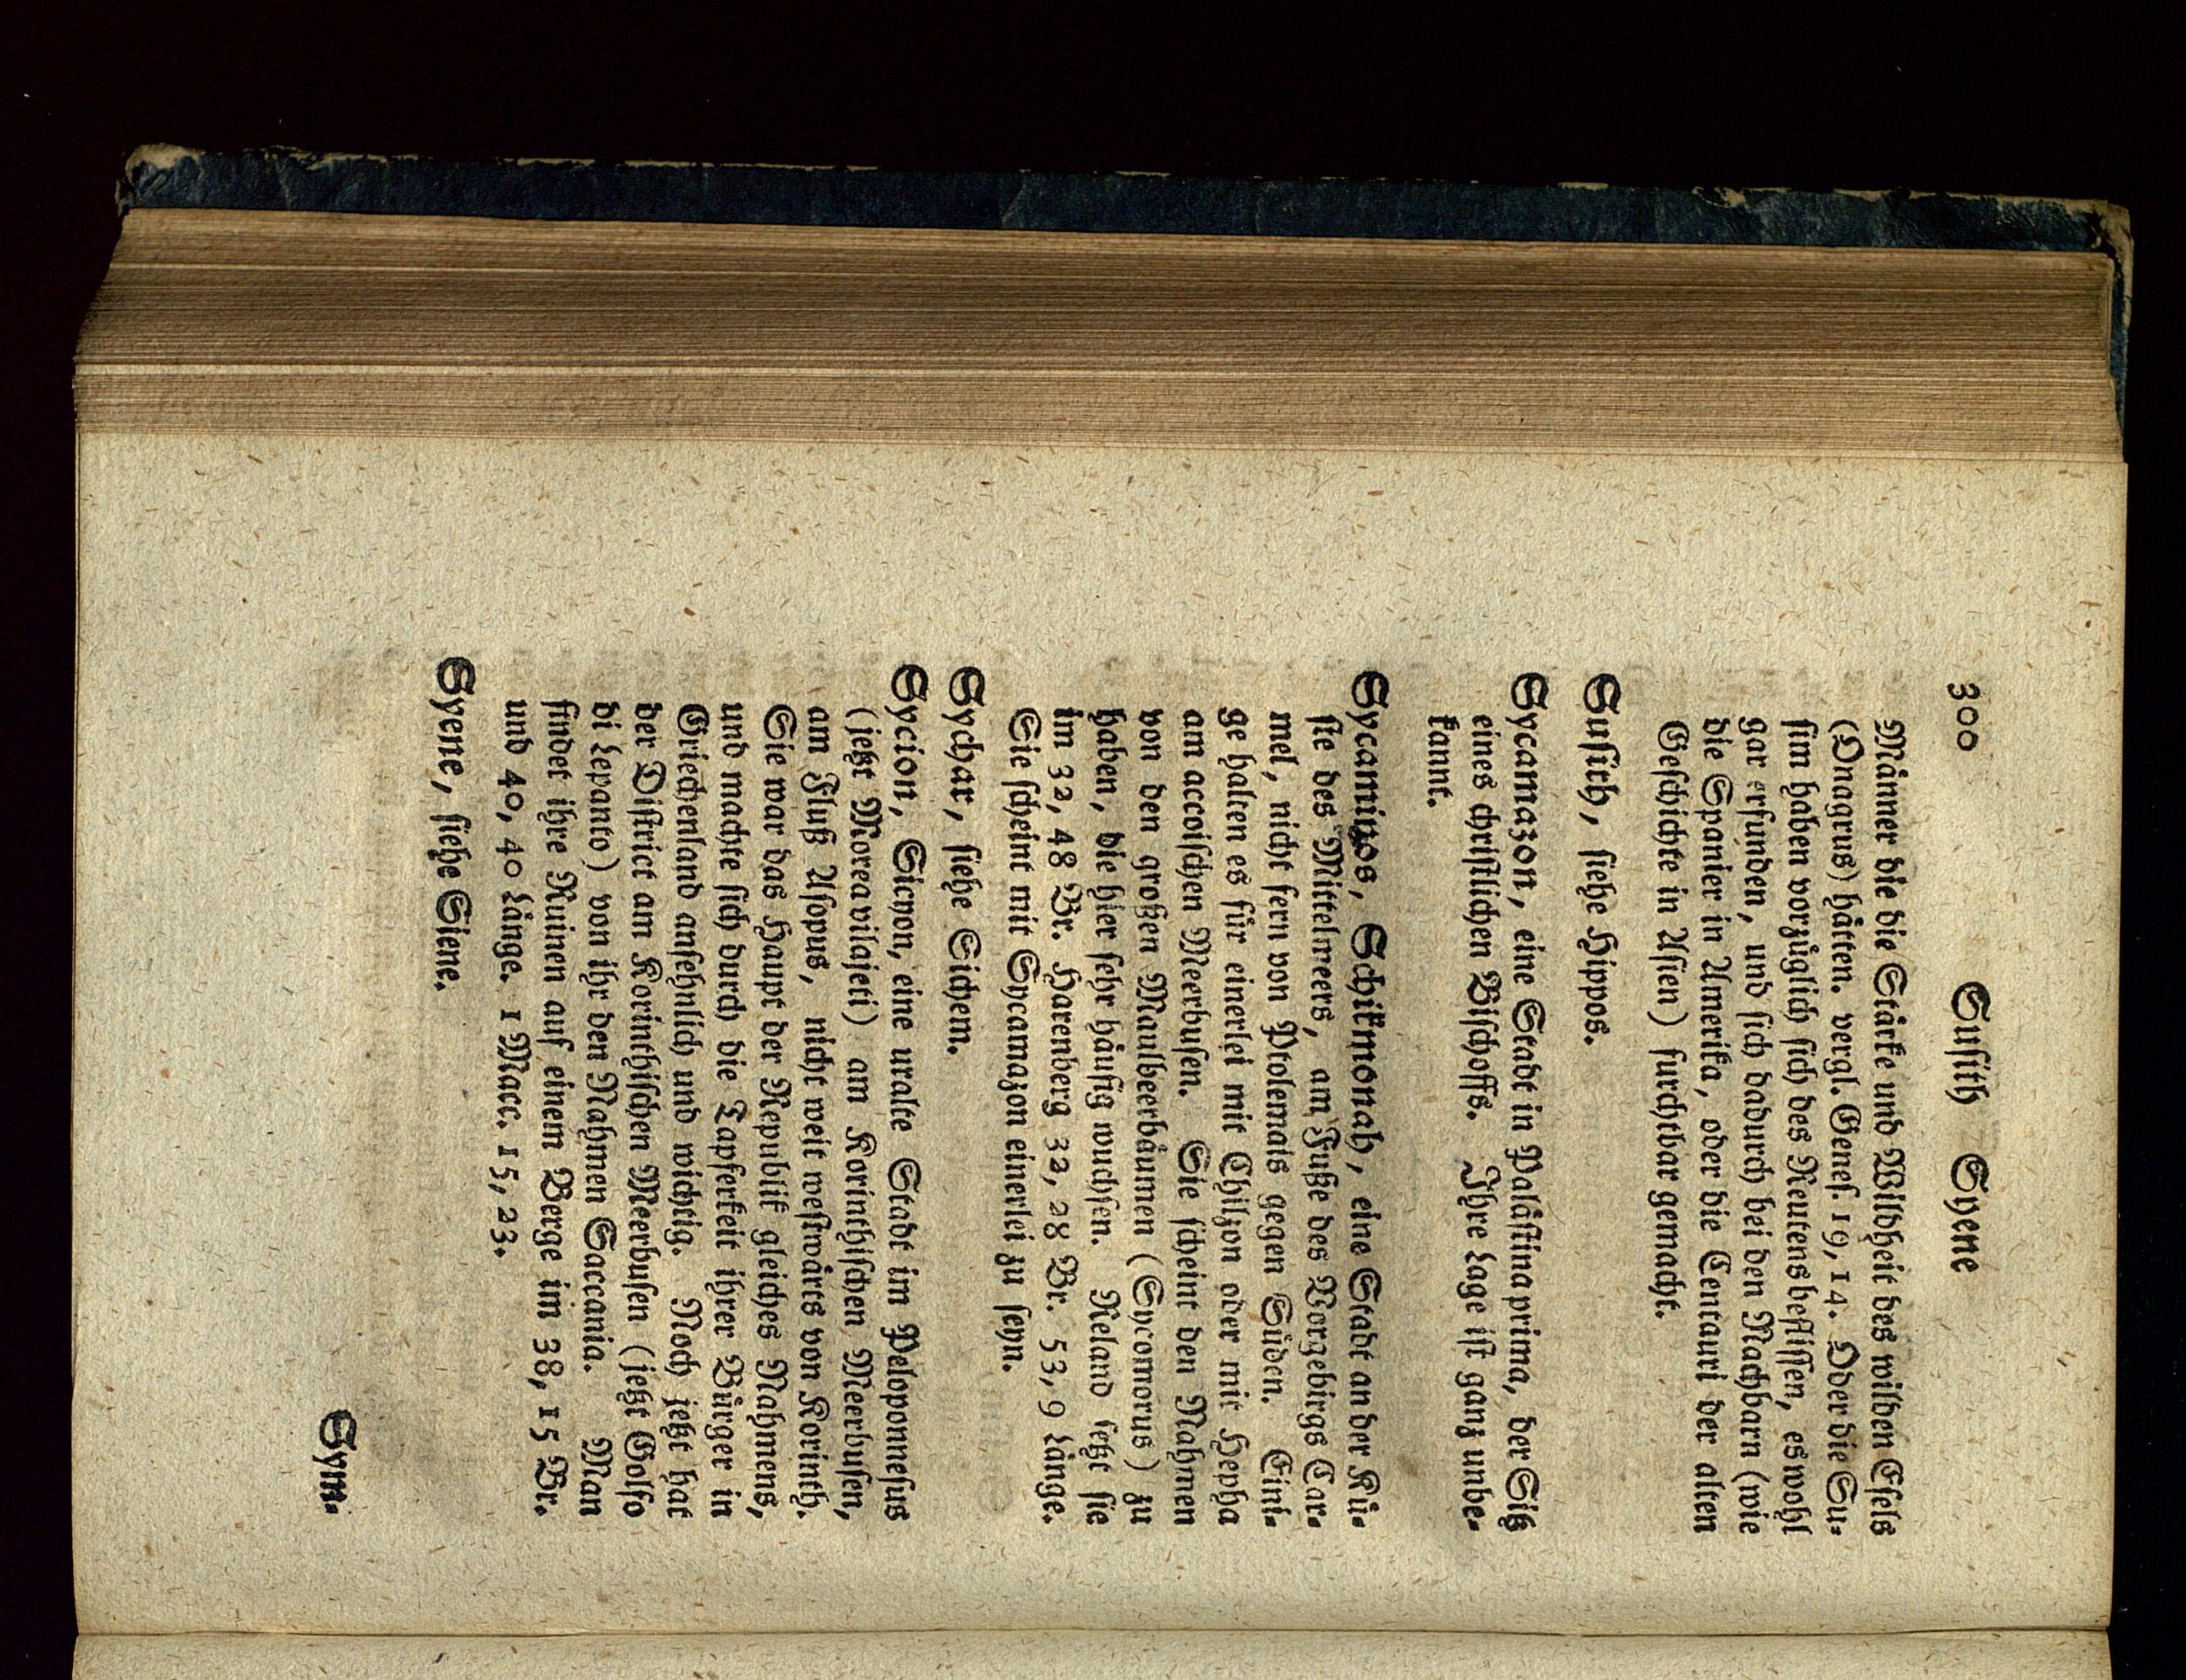 300 Susith Syene
Männer die die Stärke und Wildheit des wilden Esels
(Onagrus) hätten. vergl. Genes. 19, 14. Oder die Su-
sim haben vorzüglich sich des Reutens beflissen, es wohl
gar erfunden, und sich dadurch bei den Nachbarn (wie
die Spanier in Amerika, oder die Centauri der alten
Geschichte in Asien) furchtbar gemacht.
Susith, siehe Hippos.
Sycamazon, eine Stadt in Palästina prima, der Sitz
eines christlichen Bischoffs. Ihre Lage ist ganz unbe-
kannt.
Sycaminos, Schikmonah, eine Stadt an der Kü-
ste des Mittelmeers, am Fuße des Vorgebirgs Car-
mel, nicht fern von Ptolemais gegen Süden. Eini-
ge halten es für einerlei mit Chilzon oder mit Hepha
am accoischen Meerbusen. Sie scheint den Nahmen
von den großen Maulbeerbäumen (Sycomorus) zu
haben, die hier sehr häufig wuchsen. Reland setzt sie
im 32, 48 Br. Harenberg 32, 28 Br. 53, 9 Länge.
Sie scheint mit Sycamazon einerlei zu seyn.
Sychar, siehe Sichem.
Sycion, Sicyon, eine uralte Stadt im Peloponnesus
(jetzt Morea vilajeti) am Korinthischen Meerbusen,
am Fluß Asopus, nicht weit westwärts von Korinth.
Sie war das Haupt der Republik gleiches Nahmens,
und machte sich durch die Tapferkeit ihrer Bürger in
Griechenland ansehnlich und wichtig. Noch jetzt hat
der District am Korinthischen Meerbusen (jetzt Golfo
di Lepanto) von ihr den Nahmen Saccania. Man
findet ihre Ruinen auf einem Berge im 38, 15 Br.
und 40, 40 Länge. 1 Macc. 15, 23.
Syene, siehe Siene.
Sym-